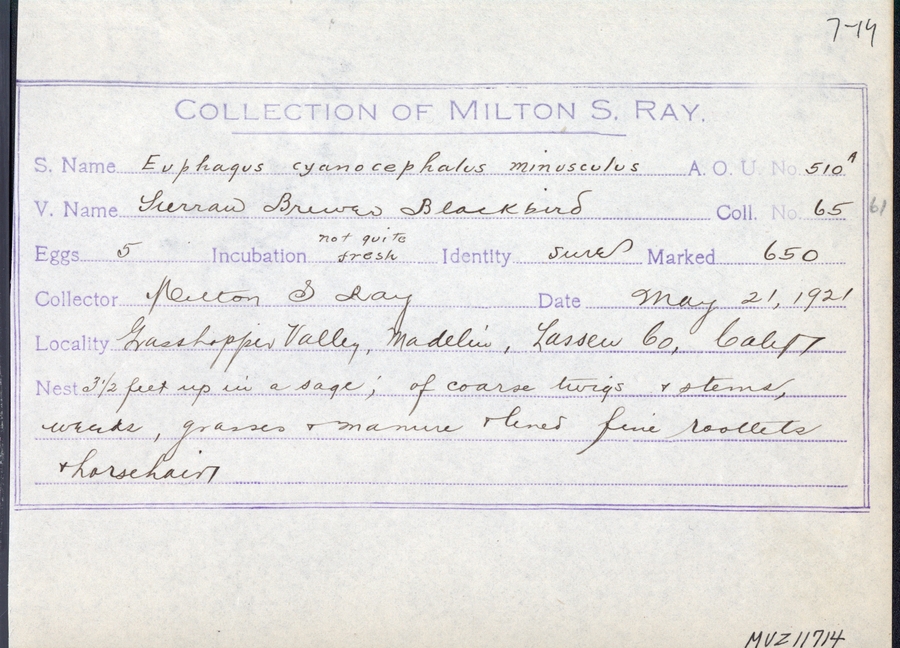 7-14
COLLECTION OF MILTON S. RAY.
S. Name Euphagus cyanocephalus minusculus A. O. U. No. 510ᴬ
V. Name Sierran Brewer Blackbird Coll. No. 65 61
Eggs 5 Incubation not quite fresh Identity sure Marked 650
Collector Milton S Ray Date May 21, 1921
Locality Grasshopper Valley, Madelin, Lassen Co, Calif
Nest 3 1/2 feet up in a sage; of coarse twigs & stems,
weeds, grasses & manure & lined fine rootlets
& horsehair
MVZ 11714